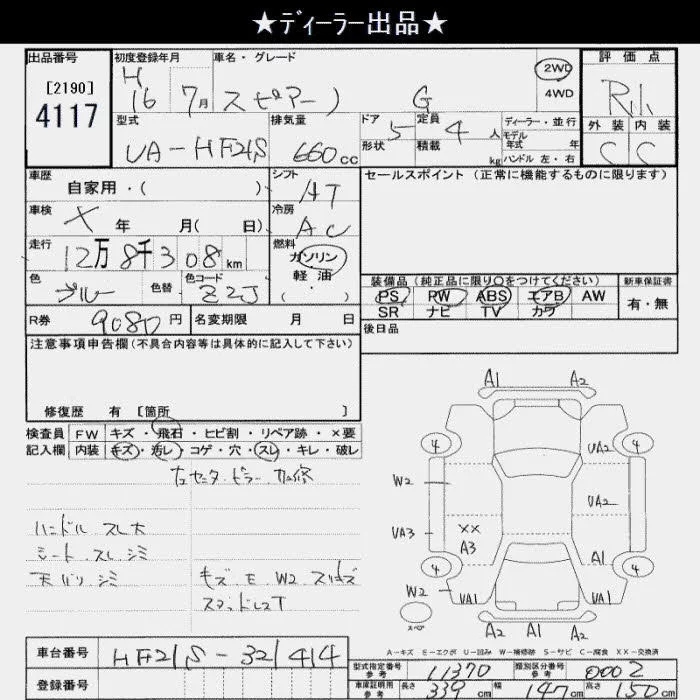 ★ディーラー出品★
出品番号 初度登録年月 車名・グレード 2WD 評価点
[2190] H 4WD
4117 16 7月 スピアーノ G R1
型式 排気量 ドア 5 定員 4人 ディーラー・並行 外装 内装
UA-HF21S 660cc 形状 積載 kg モデル年式 年 C C
ハンドル 左・右
車歴 シフト セールスポイント(正常に機能するものに限ります)
自家用・( ) AT
車検 × 年 月( 日) 冷房 AC
走行 12万8千308km 燃料 ガソリン
軽油
色 ブルー 色替 色コード Z2J ( . )
装備品(純正品に限り○をつけてください) 新車保証書
PS PW ABS エアB AW 有・無
SR ナビ TV カワ
R券 9080円 名変期限 月 日 後日品
注意事項申告欄(不具合内容等は具体的に記入して下さい)
修復歴 有 [箇所 ]
検査員 FW キズ・飛石・ヒビ割・リペア跡・×要
記入欄 内装 キズ・汚レ・コゲ・穴・スレ・キレ・破レ
右センターピラー 加修
ハンドル スレ大
シート スレ シミ
天バリ シミ キズ E W2 スリキズ
スタッドレスT
A1 A2
4 UA2 4
W2
UA2
UA3 XX
A3 A1
4 4
W2 UA1 UA1
スペア A2 A1 A2
A-キズ E-エクボ U-凹み W-補修跡 S-サビ C-腐食 XX-交換済
車台番号 HF21S-321414
登録番号
型式指定番号 参考 11370 類別区分番号 参考 0002
車庫証明用 参考 長さ 339cm 幅 147cm 高さ 150cm